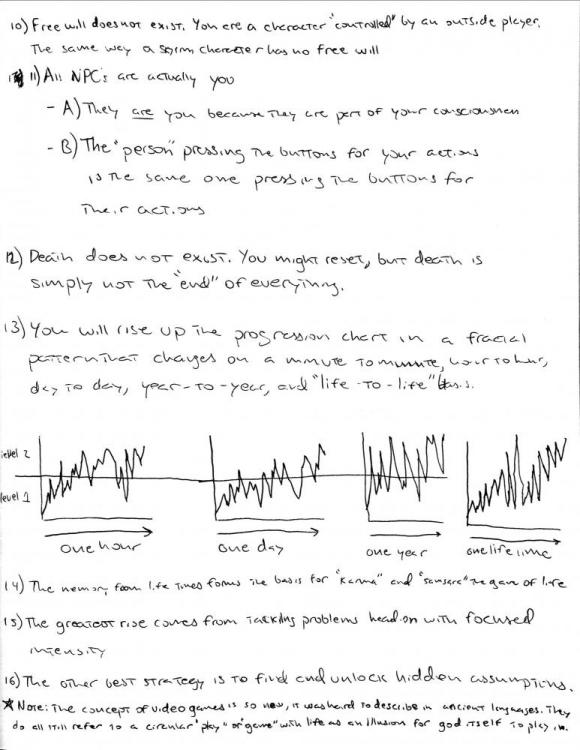 10) Free will does not exist. You are a character "controlled" by an outside player.
The same way a character has no free will
11) All NPC's are actually you
- A) They are you because they are part of your consciousness
- B) The "person" pressing the buttons for your actions
is the same one pressing the buttons for
their actions
12) Death does not exist. You might reset, but death is
simply not the "end" of everything.
13) You will rise up the progression chart in a fractal
pattern that changes on a minute to minute, hour to hour,
day to day, year-to-year, and "life-to-life" basis.
level 2
level 1
one hour
one day
one year
one life time
14) The memory from life times forms the basis for "karma" and "samsara" the game of life
15) The greatest rise comes from tackling problems head on with focused
intensity
16) The other best strategy is to find and unlock hidden assumptions.
★ Note: The concept of video games is so new, it was hard to describe in ancient languages. They
do all still refer to a circular "play" or "game" with life as an illusion for god itself to play in.